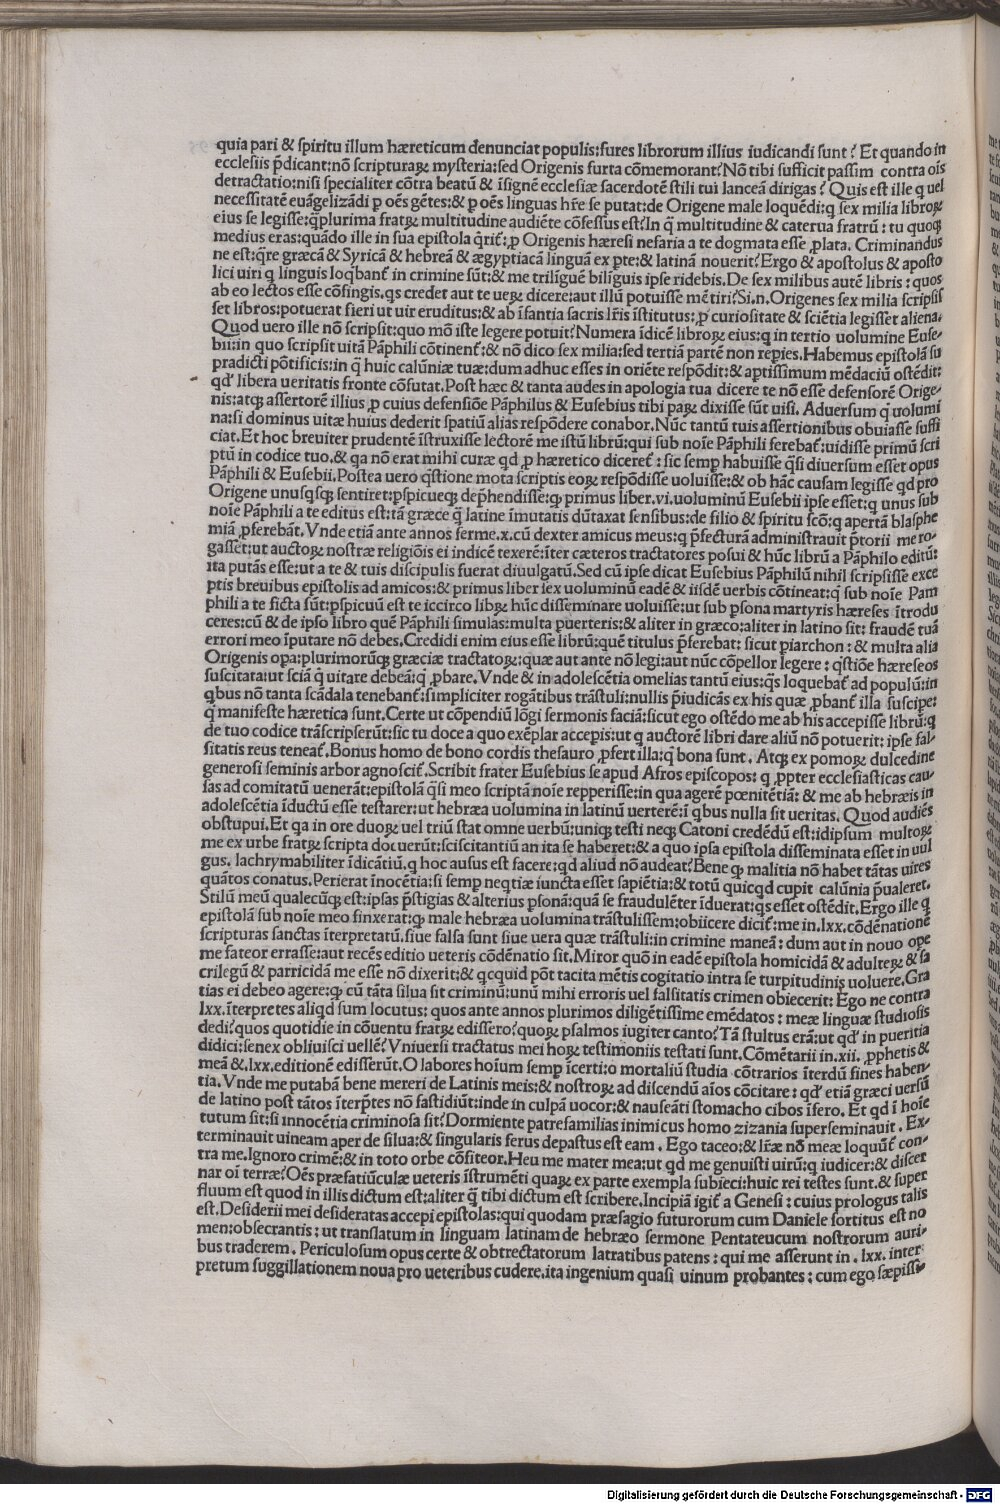 quia pari & spiritu illum hæreticum denunciat populis:fures librorum illius iudicandi sunt? Et quando in
ecclesiis p̄dicant:nō scripturaꝝ mysteria:sed Origenis furta cōmemorant?Nō tibi sufficit passim contra oīs
detractatio:nisi specialiter cōtra beatū & īsignē ecclesiæ sacerdotē stili tui lanceā dirigas? Quis est ille q uel
necessitatē euāgelizādi ꝑ oēs gētes:& ꝑ oēs linguas hr̄e se putat:de Origene male loquēdi:q sex milia libroꝝ
eius se legisse:q̄plurima fratꝝ multitudine audiēte cōfessus est?In q̄ multitudine & caterua fratrū:tu quoqꝫ
medius eras:quādo ille in sua epistola q̄rit̄:ꝓ Origenis hæresi nefaria a te dogmata esse ꝓlata. Criminandus
ne est:q̄re græcā & Syricā & hebreā & ægyptiacā linguā ex pte:& latinā nouerit?Ergo & apostolus & aposto
lici uiri q linguis loq̄bant̄ in crimine sūt:& me trilīguē bilīguis ipse ridebis.De sex milibus autē libris:quos
ab eo lectos esse cōfingis.qs credet aut te ueꝝ dicere:aut illū potuisse mētiri?Si.n.Origenes sex milia scripsis
set libros:potuerat fieri ut uir eruditus:& ab īfantia sacris lr̄is īstitutus:ꝓ curiositate & sciētia legisset aliena.
Quod uero ille nō scripsit:quo mō iste legere potuit?Numera īdicē libroꝝ eius:q in tertio uolumine Euse-
bii:in quo scripsit uitā Pāphili cōtinent̄:& nō dico sex milia:sed tertiā partē non repies.Habemus epistolā su
pradicti pōtificis:in q̄ huic calūniæ tuæ:dum adhuc esses in oriēte respōdit:& aptissimum mēdaciū ostēdit:
qd̄ libera ueritatis fronte cōfutat.Post hæc & tanta audes in apologia tua dicere te nō esse defensorē Orige-
nis:atqꝫ assertorē illius,ꝓ cuius defensiōe Pāphilus & Eusebius tibi paꝝ dixisse sūt uisi. Aduersum q̄ uolumi
na:si dominus uitæ huius dederit spatiū alias respōdere conabor.Nūc tantū tuis assertionibus obuiasse suffi
ciat.Et hoc breuiter prudentē īstruxisse lectorē me istū librū:qui sub noīe Pāphili ferebat̄:uidisse primū scri
ptū in codice tuo.& qa nō erat mihi curæ qd ꝓ hæretico diceret̄:sic semp habuisse q̄si diuersum esset opus
Pāphili & Eusebii.Postea uero q̄stione mota scriptis eoꝝ respōdisse uoluisse:& ob hāc causam legisse qd pro
Origene unusq̄sqꝫ sentiret:pspicueqꝫ dep̄hendisse:qꝫ primus liber.vi.uoluminū Eusebii ipse esset:q unus sub
noīe Pāphili a te editus est:tā græce q̄ latine īmutatis dūtaxat sensibus:de filio & spiritu scō:q apertā blasphe
miā ꝓferebāt.Vnde etiā ante annos ferme.x.cū dexter amicus meus:q p̄fecturā administrauit p̄torii me ro-
gasset:ut auctoꝝ nostræ religiōis ei indicē texerē:īter cæteros tractatores posui & hūc librū a Pāphilo editū:
ita putās esse:ut a te & tuis discipulis fuerat diuulgatū.Sed cū ipse dicat Eusebius Pāphilū nihil scripsisse exce
ptis breuibus epistolis ad amicos:& primus liber sex uoluminū eadē & iisdē uerbis cōtineat:q̄ sub noīe Pam
phili a te ficta sūt:pspicuū est te iccirco libꝝ hūc disseminare uoluisse:ut sub psona martyris hæreses ītrodu
ceres:cū & de ipso libro quē Pāphili simulas:multa puerteris:& aliter in græco:aliter in latino sit: fraudē tuā
errori meo īputare nō debes.Credidi enim eius esse librū:quē titulus p̄ferebat: sicut piarchon:& multa alia
Origenis opa:plurimorūqꝫ græciæ tractatoꝝ:quæ aut ante nō legi:aut nūc cōpellor legere:q̄stiōe hæreseos
suscitata:ut sciā q̄ uitare debeā:q̄ ꝓbare.Vnde & in adolescētia omelias tantū eius:qs loquebat̄ ad populū:in
qbus nō tanta scādala tenebant̄:simpliciter rogātibus trāstuli:nullis p̄iudicās ex his quæ ꝓbant̄ illa suscipe:
q̄ manifeste hæretica sunt.Certe ut cōpendiū lōgi sermonis faciā:sicut ego ostēdo me ab his accepisse librū:q
de tuo codice trāscripserūt:sic tu doce a quo exēplar accepis:ut q auctorē libri dare aliū nō potuerit: ipse fal-
sitatis reus teneat̄.Bonus homo de bono cordis thesauro ꝓfert illa:q̄ bona sunt. Atqꝫ ex pomoꝝ dulcedine
generosi seminis arbor agnoscit̄.Scribit frater Eusebius se apud Afros episcopos: q ꝓpter ecclesiasticas cau-
sas ad comitatū uenerāt:epistolā q̄si meo scriptā noīe repperisse:in qua agerē pœnitētiā: & me ab hebræis in
adolescētia īductū esse testarer:ut hebræa uolumina in latinū uerterē:ī qbus nulla sit ueritas. Quod audiēs
obstupui.Et qa in ore duoꝝ uel triū stat omne uerbū:uniqꝫ testi neqꝫ Catoni credēdū est:idipsum multoꝝ
me ex urbe fratꝝ scripta docuerūt:sciscitantiū an ita se haberet:& a quo ipsa epistola disseminata esset in uul
gus. lachrymabiliter īdicātiū.q hoc ausus est facere:qd aliud nō audeat?Bene qꝫ malitia nō habet tātas uires
quātos conatus.Perierat īnocētia:si semp neqtiæ iuncta esset sapiētia:& totū quicqd cupit calūnia p̄ualeret.
Stilū meū qualecūqꝫ est:ipsas p̄stigias & alterius psonā:quā se fraudulēter īduerat:qs esset ostēdit.Ergo ille q
epistolā sub noīe meo finxerat:qꝫ male hebræa uolumina trāstulissem:obiicere dicit̄:me in.lxx.cōdēnationē
scripturas sanctas īterpretatū.siue falsa sunt siue uera quæ trāstuli:in crimine maneā: dum aut in nouo ope
me fateor errasse:aut recēs editio ueteris cōdēnatio sit.Miror quō in eadē epistola homicidā & adulteꝝ & sa
crilegū & parricidā me esse nō dixerit:& qcquid pōt tacita mētis cogitatio intra se turpitudinis uoluere.Gra
tias ei debeo agere:qꝫ cū tāta silua sit criminū:unū mihi erroris uel falsitatis crimen obiecerit: Ego ne contra
lxx.īterpretes aliqd sum locutus: quos ante annos plurimos diligētissime emēdatos: meæ linguæ studiosis
dedi?quos quotidie in cōuentu fratꝝ edissero?quoꝝ psalmos iugiter canto?Tā stultus erā:ut qd̄ in pueritia
didici:senex obliuisci uellē?Vniuersi tractatus mei hoꝝ testimoniis testati sunt.Cōmētarii in.xii. ꝓphetis &
meā &.lxx.editionē edisserūt.O labores hoīum semp īcerti:o mortaliū studia cōtrarios īterdū fines haben-
tia.Vnde me putabā bene mereri de Latinis meis:& nostroꝝ ad discendū aīos cōcitare: qd̄ etiā græci uersū
de latino post tātos īterp̄tes nō fastidiūt:inde in culpā uocor:& nauseāti stomacho cibos īfero. Et qd ī hoīe
tutum sit:si innocētia criminosa sit?Dormiente patrefamilias inimicus homo zizania superseminauit. Ex-
terminauit uineam aper de silua:& singularis ferus depastus est eam. Ego taceo:& lr̄æ nō meæ loquūt̄ con-
tra me.Ignoro crimē:& in toto orbe cōfiteor.Heu me mater mea:ut qd me genuisti uirū:q iudicer:& discer
nar oī terræ?Oēs præfatiūculæ ueteris īstrumēti quaꝝ ex parte exempla subieci:huic rei testes sunt.& super
fluum est quod in illis dictum est:aliter q̄ tibi dictum est scribere.Incipiā igit̄ a Genesi: cuius prologus talis
est.Desiderii mei desideratas accepi epistolas:qui quodam præsagio futurorum cum Daniele sortitus est no
men:obsecrantis: ut translatum in linguam latinam de hebræo sermone Pentateucum nostrorum auri-
bus traderem. Periculosum opus certe & obtrectatorum latratibus patens: qui me asserunt in. lxx. inter
pretum suggillationem noua pro ueteribus cudere.ita ingenium quasi uinum probantes: cum ego sæpissi-
Digitalisierung gefördert durch die Deutsche Forschungsgemeinschaft - DFG